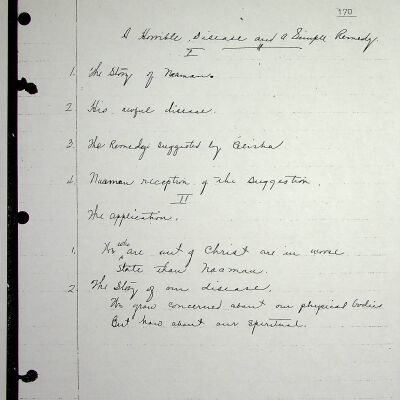 170
A Horrible Disease and A Simple Remedy
I
1. The Story of Naaman.
2. His awful disease.
3. The Remedy suggested by Elisha
4. Naaman reception of the suggestion.
II
The application.
1. who are out of Christ are in worse
state than Naaman.
2. The Story of our disease.
We grow concerned about our physical bodies
But how about our spiritual.